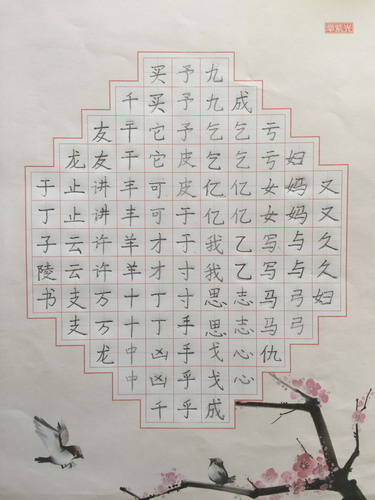 又又久久妇
妇妈妈与与弓弓
亏亏女女写写马马仇
成乞乞亿亿乙乙志志心心
九九乞乞亿亿我我思思戈戈成
予予予皮皮于于寸寸手手乎乎
买买它它可可才才丁丁凶凶千
千干干丰丰羊羊十十中中
友友讲讲许许万万龙
龙止止云云支支
于丁子陵书